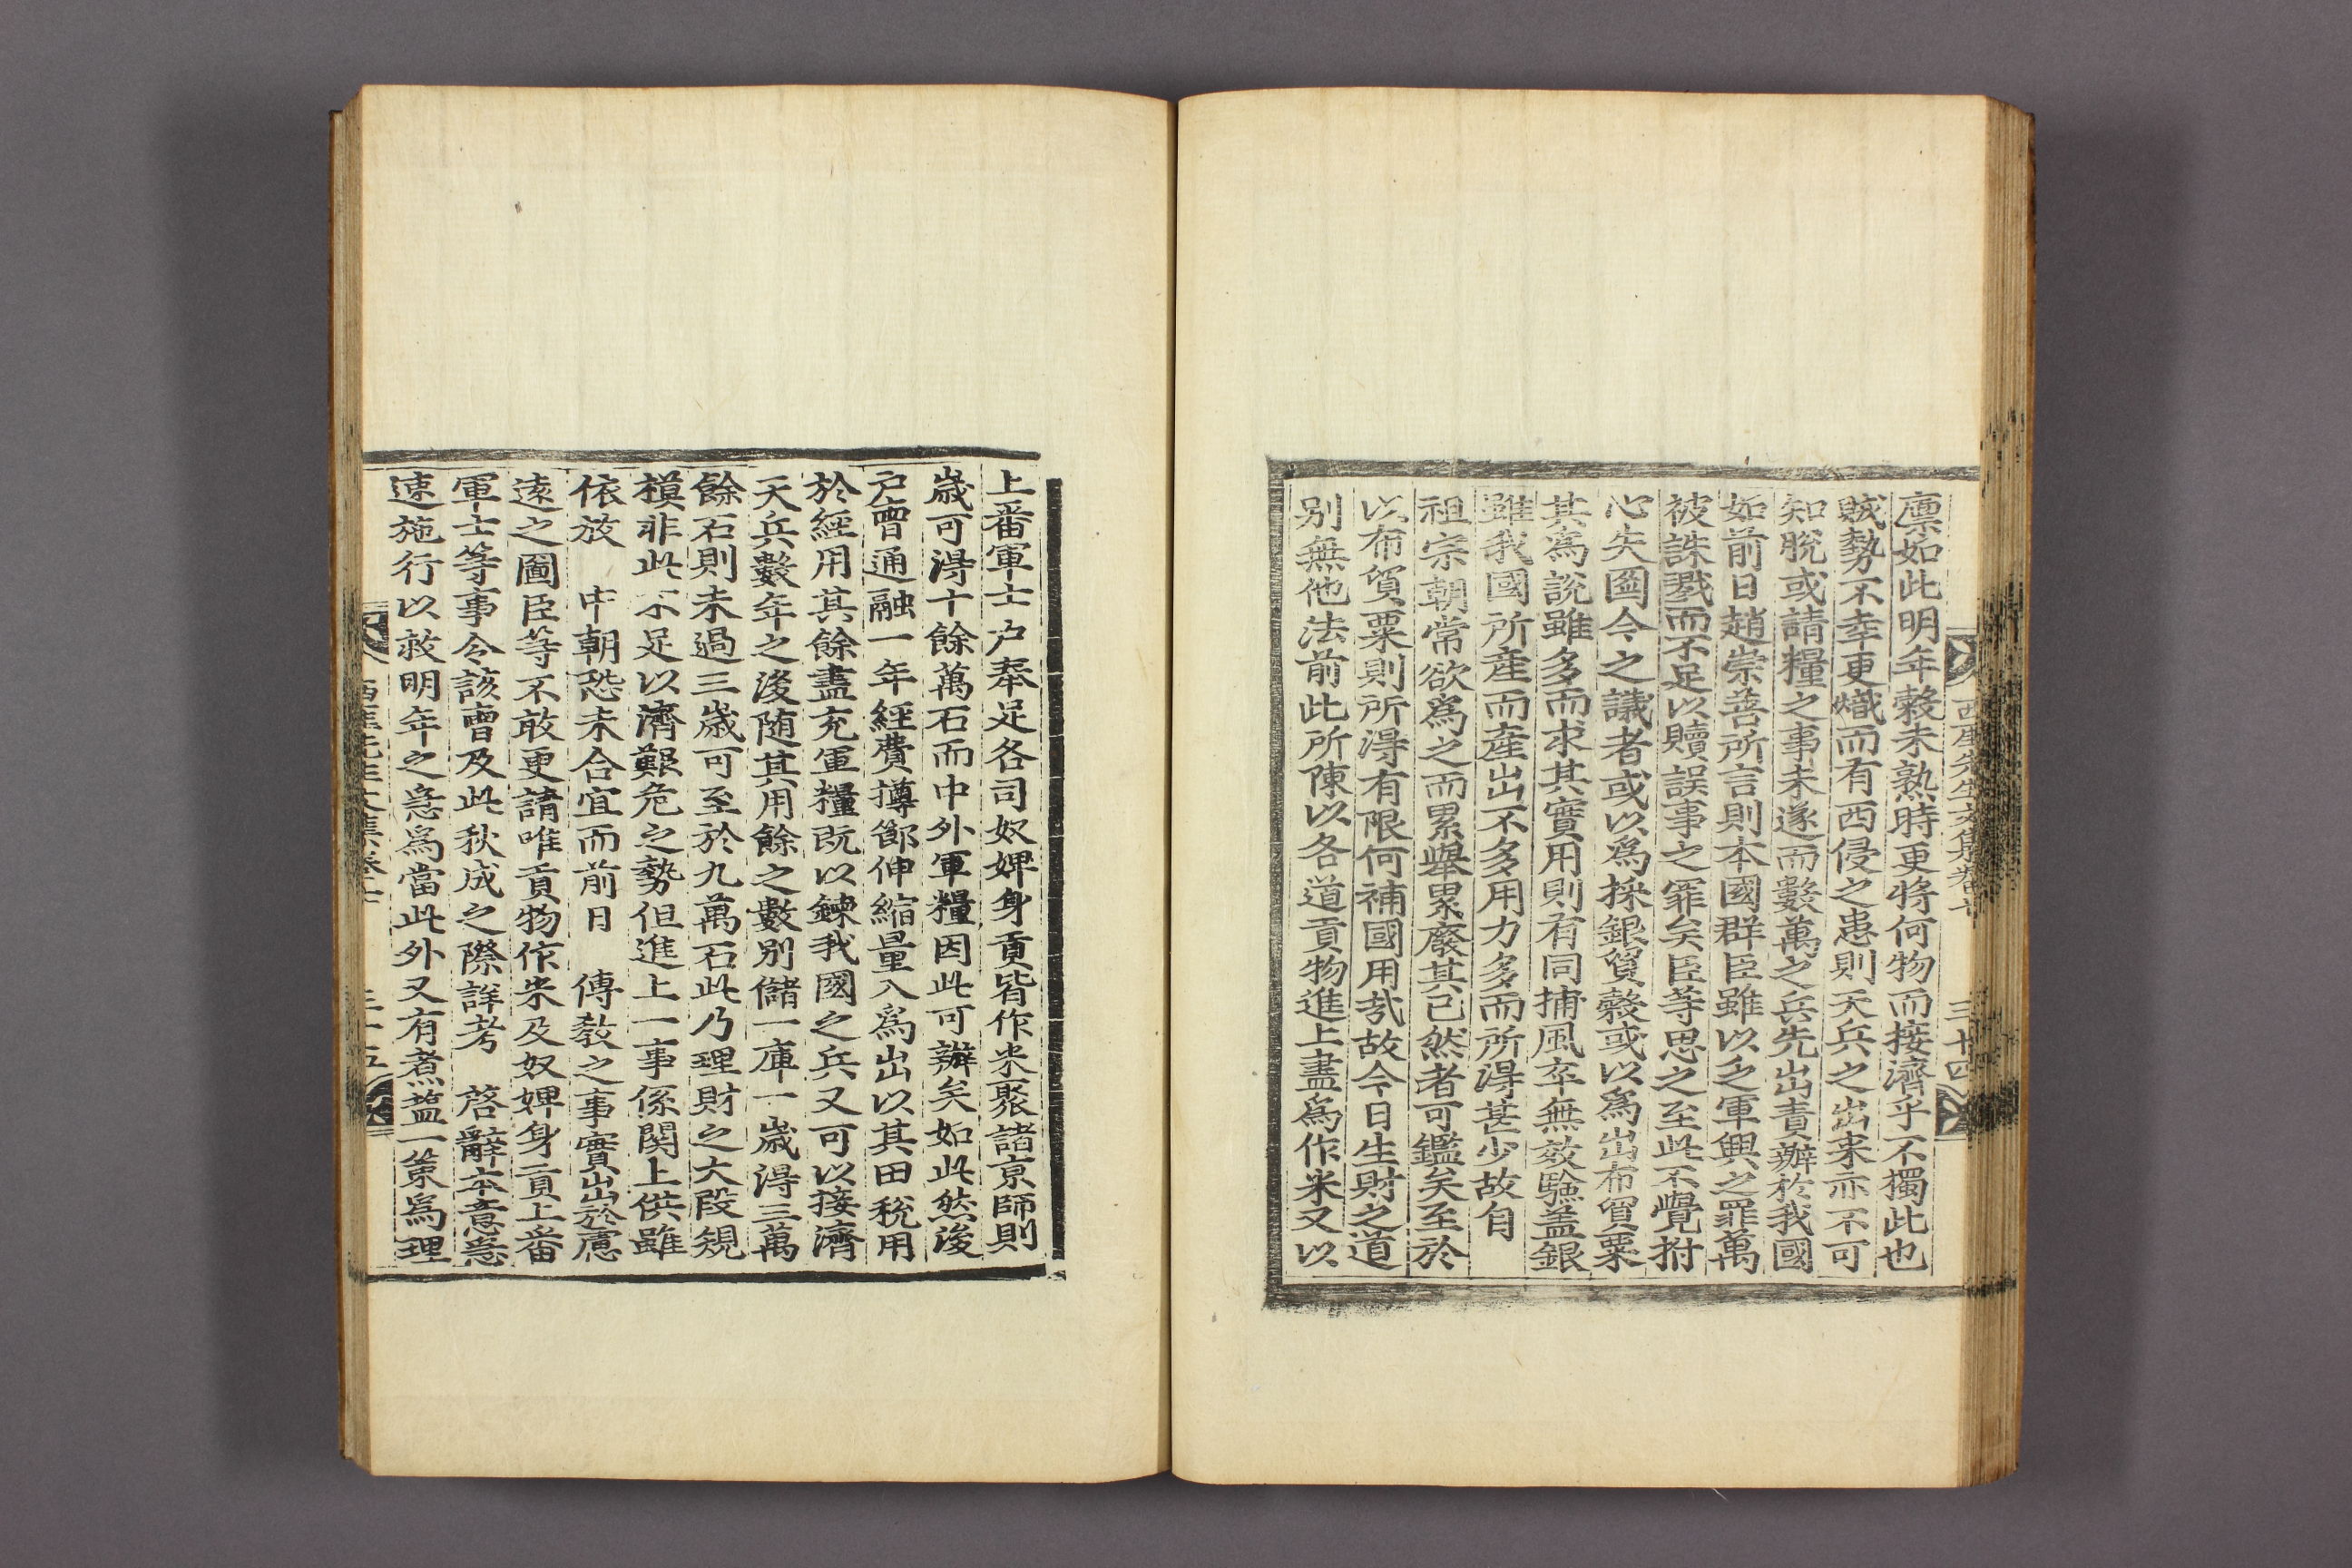 西厓先生文集卷七 三十四
廪如此明年穀未熟時更將何物而接濟乎不獨此也
賊勢不幸更熾而有西侵之患則天兵之出来亦不可
知脫或請糧之事未遂而數萬之兵先出責辦於我國
如前日趙崇善所言則本國群臣雖以乏軍興之罪萬
被誅戮而不足以贖誤事之罪矣臣等思之至此不覺拊
心失圖今之議者或以爲採銀貿穀或以爲出布貿粟
其爲說雖多而求其實用則有同捕風卒無效驗盖銀
雖我國所産而産出不多用力多而所得甚少故自
祖宗朝常欲爲之而累舉累廢其已然者可鑑矣至於
以布貿粟則所得有限何補國用哉故今日生財之道
别無他法前此所陳以各道貢物進上盡爲作米又以
上番軍士户奉足各司奴婢身貢皆作米聚諸京師則
歲可得十餘萬石而中外軍糧因此可辦矣如此然後
户曹通融一年經費撙節伸縮量入爲出以其田稅用
於經用其餘盡充軍糧既以鍊我國之兵又可以接濟
天兵數年之後随其用餘之數别儲一庫一歲得三萬
餘石則未過三歲可至於九萬石此乃理財之大段規
模非此不足以濟艱危之勢但進上一事係関上供雖
依放 中朝恐未合宜而前日 傳敎之事實出於憲
遠之圖臣等不敢更請唯貢物作米及奴婢身貢上番
軍士等事令該曹及此秋成之際詳考 啓辭本意急
速施行以救明年之急爲當此外又有煮塩一策爲理
西厓先生文集卷七 三十五